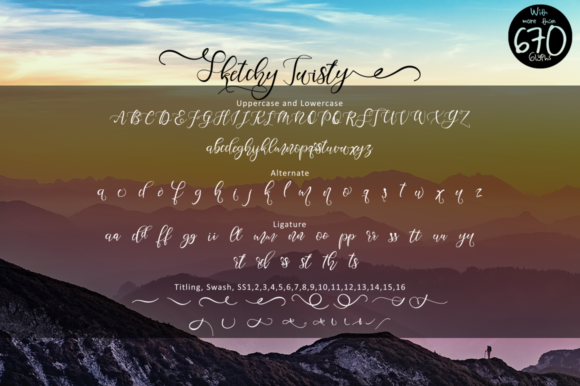 With
more than
670
Glyphs
Sketchy Twisty
Uppercase and Lowercase
A B C D E F G H I J K L M N O P Q R S T U V W X Y Z
abcdefghijklmnopqrstuvwxyz
Alternate
Ligature
aa dd ff gg ii ll mm nn oo pp rr ss tt uu yy
st th ts
Titling, Swash, SS1,2,3,4,5,6,7,8,9,10,11,12,13,14,15,16